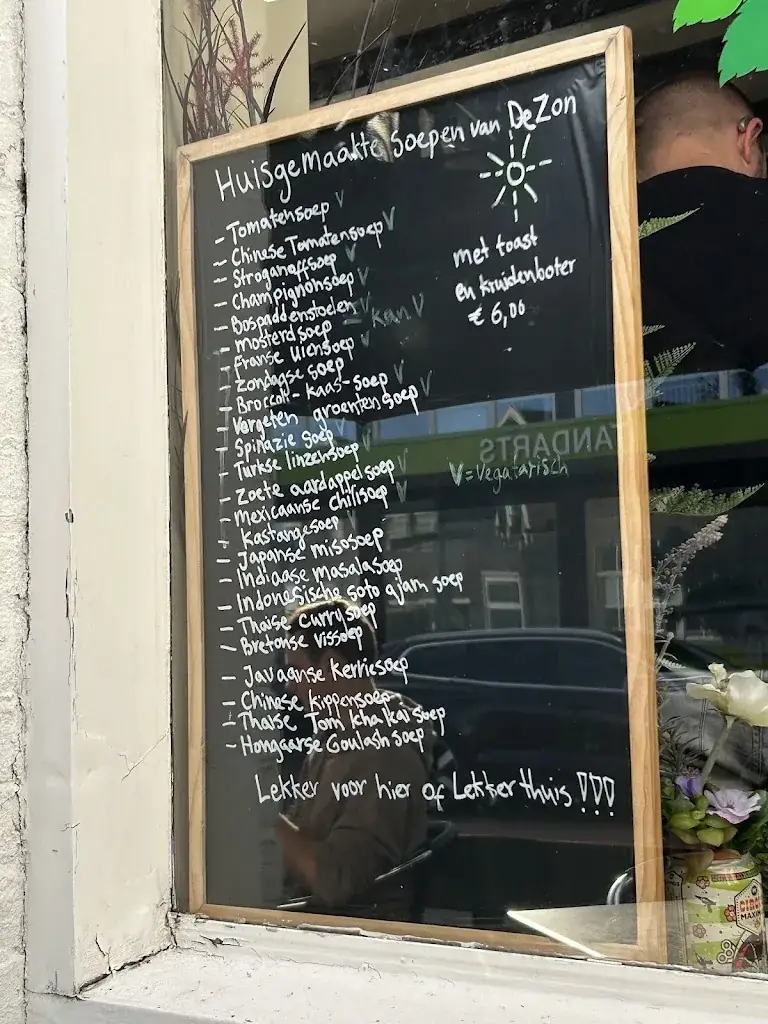 Huisgemaakte Soepen van De Zon
- Tomatensoep V
- Chinese Tomatensoep V
- Stroganoffsoep V
- Champignonsoep V
- Bospaddenstoelen V
- mosterdsoep - kan V
- Franse uiensoep V
- Zondagse soep
- Broccoli-kaas-soep V
- Vergeten groentensoep V
- Spinazie soep V
- Turkse linzensoep V
- Zoete aardappelsoep V
- Mexicaanse chilisoep V
- Kastangesoep V
- Japanse misosoep
- Indiaase masalasoep
- Indonesische soto ajam soep
- Thaise currysoep
- Bretonse vissoep
- Javaanse kerriesoep
- Chinese kippensoep
- Thaise Tom kha kai soep
- Hongaarse Goulash soep
met toast
en kruidenboter
€ 6,00
V = Vegatarisch
Lekker voor hier of Lekker thuis !!!
TANDARTS